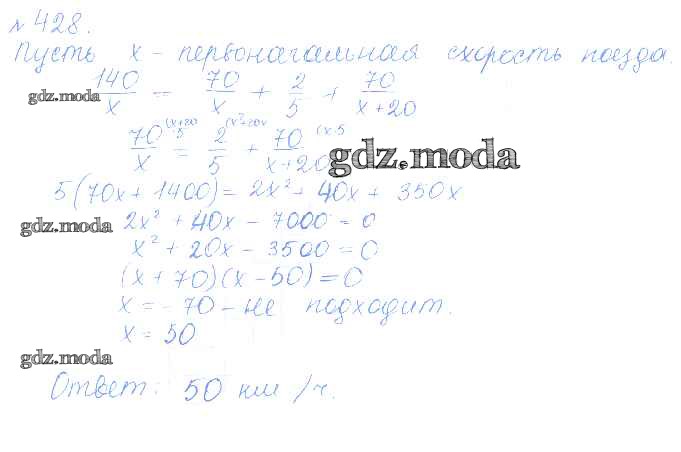 № 428.
Пусть x - первоначальная скорость поезда.
gdz.moda 140/x = 70/x + 2/5 + 70/(x+20)
70/x (x+20 5 = 2/5 (x²+20x + 70/(x+20) (x·5
gdz.moda
5(70x + 1400) = 2x² + 40x + 350x
gdz.moda 2x² + 40x - 7000 = 0
x² + 20x - 3500 = 0
(x + 70)(x - 50) = 0
x = - 70 - не подходит.
x = 50
gdz.moda
Ответ: 50 км/ч.